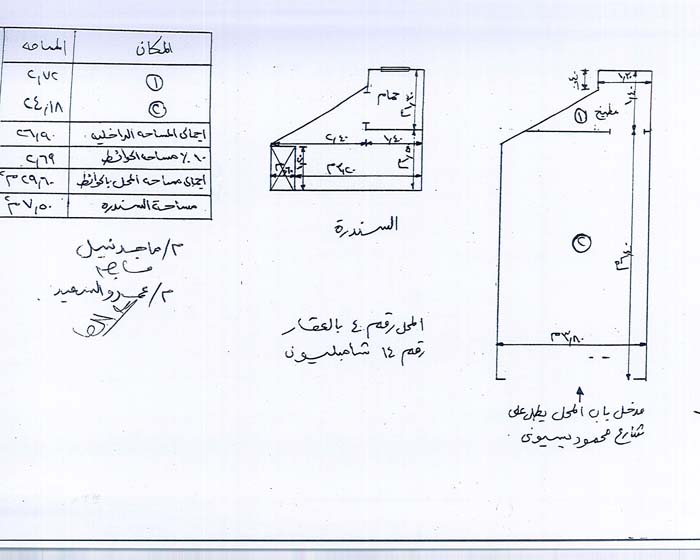 المكان المساحه
١ ٢,٧٢
٢ ٢٤,١٨
اجمالى المساحه الداخليه ٢٦,٩٠
١٠٪ مساحه الحوائط ٢,٦٩
اجمالى مساحه المحل بالحوائط ٢٩,٦٠ م٢
مساحة السندرة ٧,٥٠ م٢
م/ماجد نبيل
م/عمرو السعيد
حمام
٢,٤٠
١,٤٠
٣,٢٠م
السندرة
المحل رقم ٤ بالعقار
رقم ١٤ شامبليون
١,٣٠
مطبخ
١
٢
٣,٨٠م
مدخل باب المحل يطل على
شارع محمود بسيونى